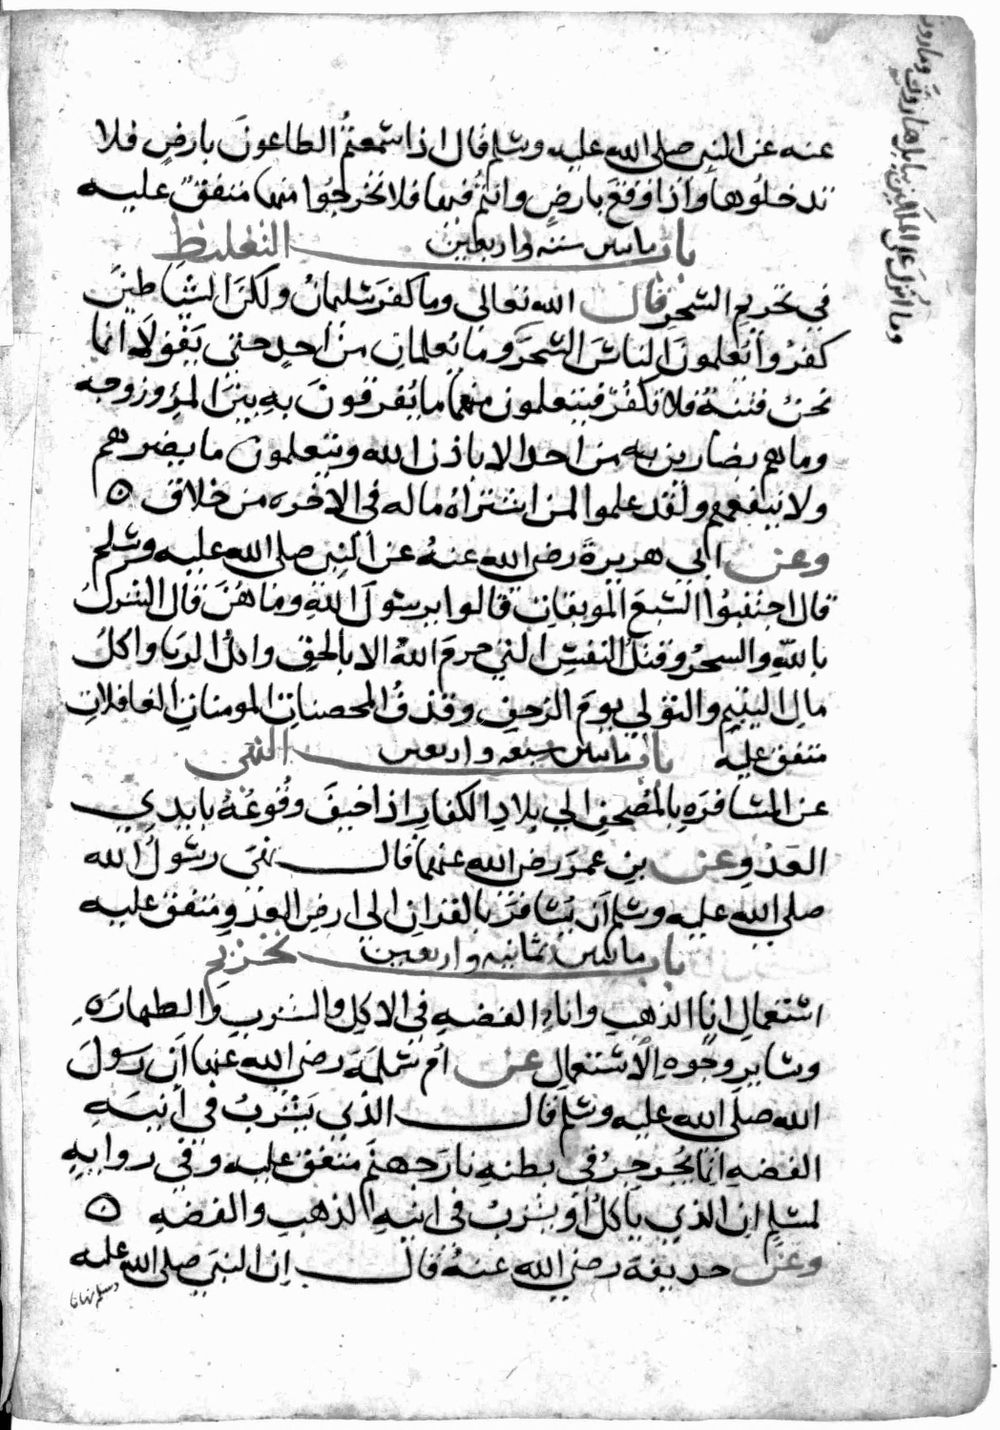 عنه عن النبي صلى الله عليه وسلم قال اذا سمعتمُ الطاعونَ بارضٍ فلا
تدخلُوها واذا وقعَ بارضٍ وانتُم فيها فلا تخرجُوا منها متفقٌ عليه
باب مايتين ستة واربعين التغليظ
في تحريم السّحر قال الله تعالى وما كفرَ سُليمانُ ولكنَ الشياطينَ
كفرُوا يُعلمونَ الناسَ السّحرَ وما يُعلمانِ من احدٍ حتى يَقولَا انما
نحنُ فتنةٌ فلا تكفُر فيتعلمون منهما ما يُفرقونَ بهِ بينَ المرءِ وزوجه
وما هم بضارين به من احد الا باذن الله ويتعلمون ما يضرهم
ولا ينفعهم ولقد علموا لمن اشتراهُ ماله في الاخره من خلاق ه
وعن ابي هريرةَ رضي الله عنهُ عن النبي صلى الله عليه وسلم
قال اجتنبُوا السّبعَ الموبقاتِ قالوا يرسُولَ اللهِ وما هُنَ قال الشركُ
باللهِ والسحرُ وقتلُ النفسِ التي حرمَ اللهُ الا بالحقِ واكلُ الربا واكلُ
مالِ اليتيمِ والتولي يومَ الزحفِ وقذفُ المحصناتِ المومناتِ الغافلاتِ
متفق عليه باب مايتين سبعه واربعين النهي
عن المسافرَهِ بالمصحفِ الى بلادِ الكفارِ اذا خيفَ وقُوعُهُ بايدي
العدوِ وعن بن عمرَ رضي الله عنهما قال نهَى رسُولُ الله
صلى الله عليه وسلم اَن يُسافرَ بالقرانِ الى ارضِ العدوِ متفق عليه
باب مايتين ثمانيه واربعين تحريم
استعمالِ اناِ الذهبِ واناءِ الفضهِ في الاكلِ والشربِ والطهارَهِ
وسايرِ وجُوهِ الاستعمالِ عن أم سَلمَة رضي الله عنها اَن رَسولَ
الله صلَى الله عليه وسلم قال الذي يَشربُ في اَنيَهِ
الفضهِ انما يُجرجرُ في بطنهِ نارَ جهنّم متفق عليه وفي روايهِ
لمسلمٍ ان الذي ياكلُ اَو يشربُ في انيهِ الذهبِ والفضهِ ه
وعن حذيفةَ رضي الله عنهُ قال إن النبيَ صلى الله عليه
وسلم نهانا
وما أنزلَ على الملَكين ببابل هاروتَ وماروت